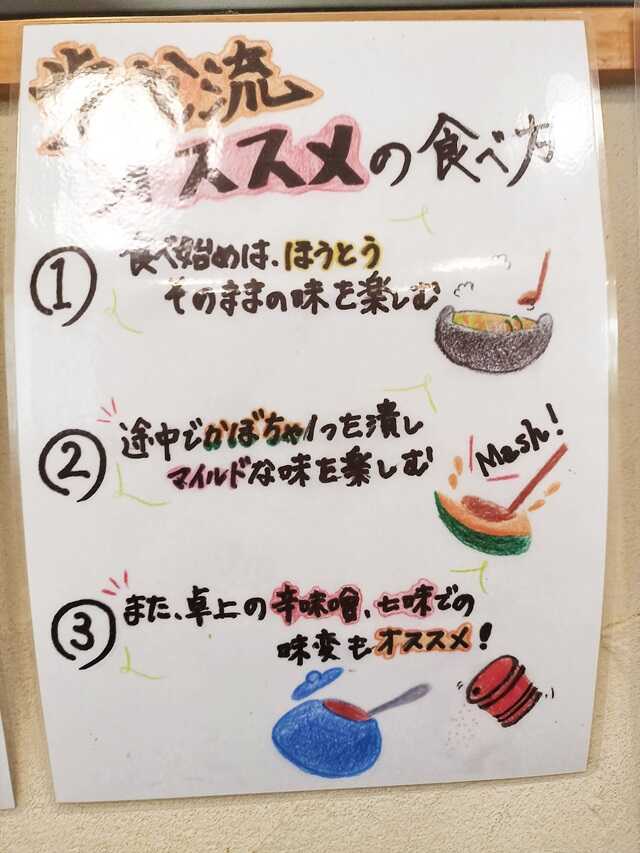 流
オススメの食べ方
① 食べ始めは、ほうとう
そのままの味を楽しむ
② 途中でかぼちゃ1つを潰し
マイルドな味を楽しむ
Mash!
③ また、卓上の辛味噌、七味での
味変もオススメ!